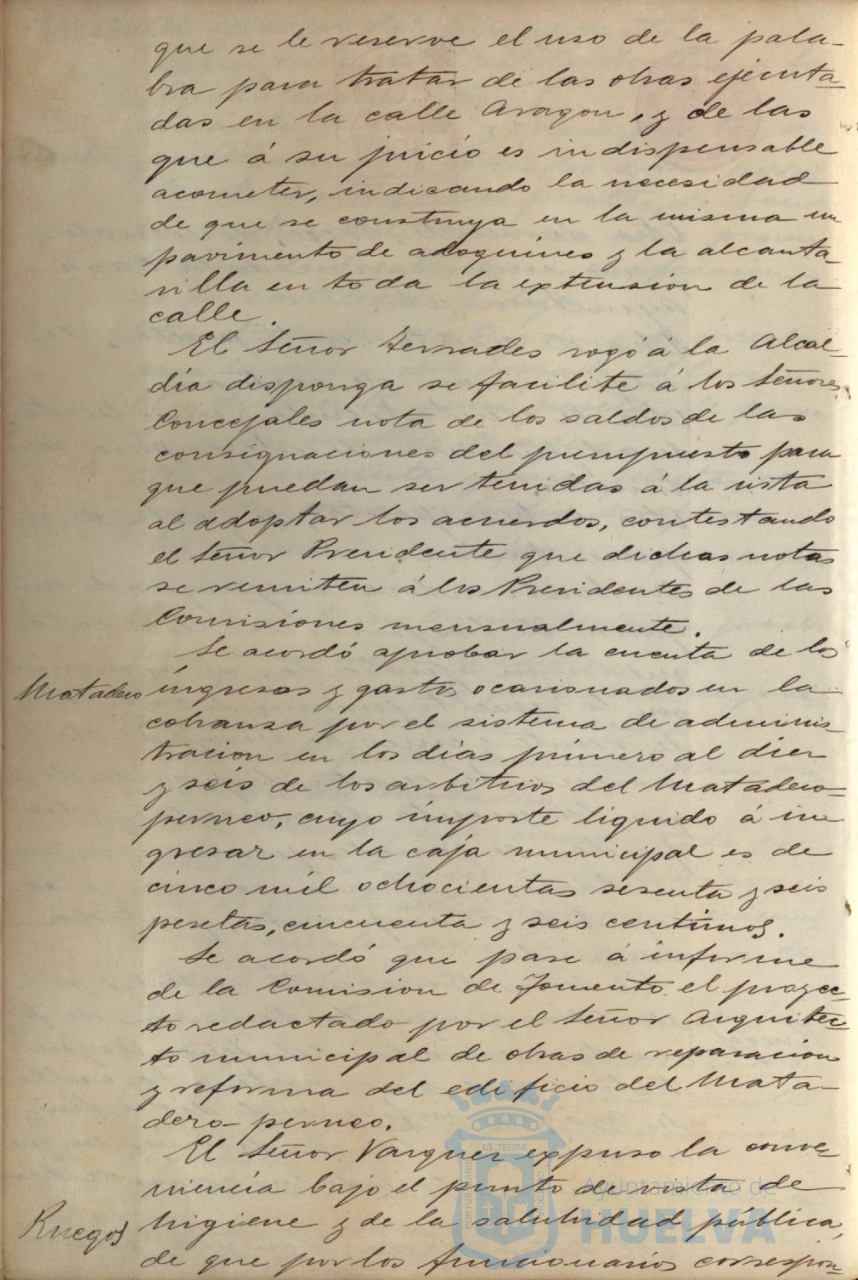 que se le reserve el uso de la pala-
bra para tratar de las obras ejecuta-
das en la calle Aragon, y de las
que á su juicio es indispensable
acometer, indicando la necesidad
de que se construya en la misma un
pavimento de adoquines y la alcanta
rilla en toda la extensión de la
calle.
El Señor Terrades rogó á la Alcal-
día disponga se facilite á los Señores
Concejales nota de los saldos de las
consignaciones del presupuesto para
que puedan ser tenidas á la vista
al adoptar los acuerdos, contestando
el Señor Presidente que dichas notas
se remiten á los Presidentes de las
Comisiones mensualmente.
Se acordó aprobar la cuenta de los
Matadero ingresos y gastos ocasionados en la
cobranza por el sistema de adminis-
tracion en los dias primero al diez
y seis de los arbitrios del Matadero-
perneo, cuyo importe liquido á in
gresar en la caja municipal es de
cinco mil ochocientas sesenta y seis
pesetas, cincuenta y seis centimos.
Se acordó que pase á informe
de la Comision de Fomento el proyec-
to redactado por el Señor Arquitec-
to municipal de obras de reparacion
y reforma del edificio del Mata-
dero-perneo.
El Señor Vazquez expuso la conve-
niencia bajo el punto de vista de
Ruegos higiene y de la salubridad pública,
de que por los funcionarios correspon-
Ayuntamiento de
HUELVA